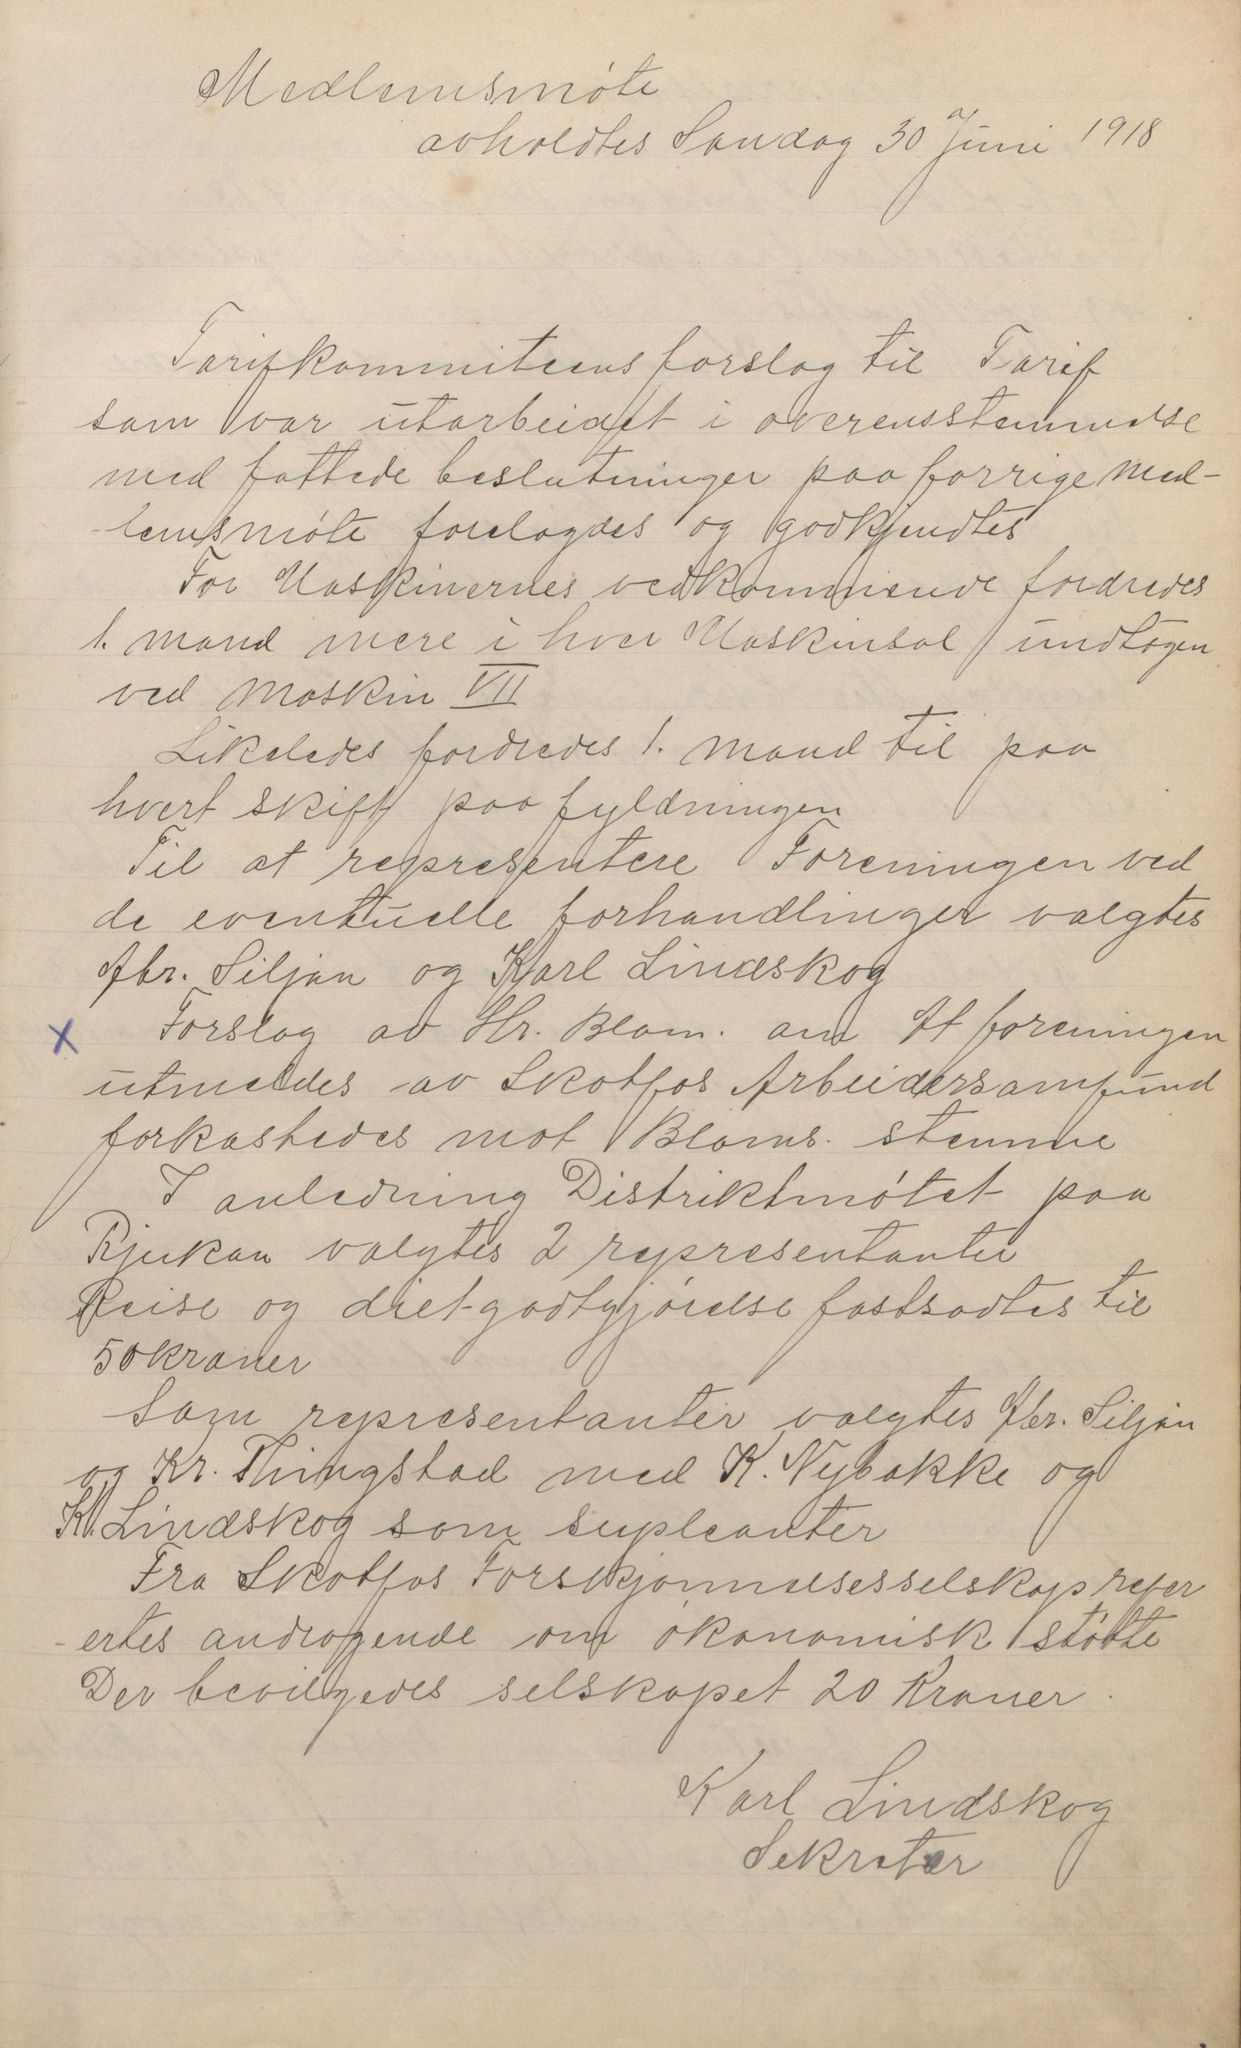 Medlemsmøte
avholdtes Søndag 30 Juni 1918
Tarifkommiteens forslag til Tarif
som var utarbeidet i overensstemmelse
med fattede beslutninger paa forrige Med-
-lemsmøte forelagdes og godkjendtes
For Maskinernes vedkommende fordredes
1. mand mere i hver Maskinsal undtagen
ved Maskin VII
Likeledes fordredes 1. mand til paa
hvert skift paa fyldningen
Til at representere Foreningen ved
de eventuelle forhandlinger valgtes
Abr. Siljan og Karl Lindskog
x Forslag av Hr. Blom. om At foreningen
utmeldes av Skotfos Arbeidersamfund
forkastedes mot Bloms. stemme
I anledning Distriktmøtet paa
Rjukan valgtes 2 representanter
Reise og diet-godtgjørelse fastsattes til
50 kroner
Som representanter valgtes Abr. Siljan
og Kr. Thingstad med K. Nybakke og
K. Lindskog som supleanter
Fra Skotfos Forskjønnelsesselskap refer
-ertes andragende om økonomisk støtte
Der bevilgedes selskapet 20 Kroner.
Karl Lindskog
Sekretær